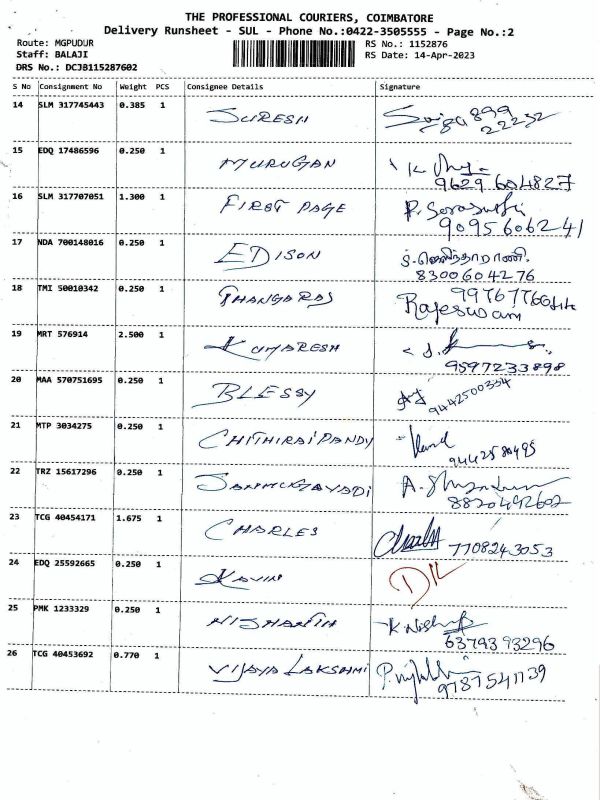 THE PROFESSIONAL COURIERS, COIMBATORE
Delivery Runsheet - SUL - Phone No.:0422-3505555 - Page No.:2
Route: MGPUDUR
RS No.: 1152876
Staff: BALAJI
RS Date: 14-Apr-2023
DRS No.: DCJB115287602
S No Consignment No Weight PCS Consignee Details Signature
14 SLM 317745443 0.385 1 SURESH 899
22232
15 EDQ 17486596 0.250 1 MURUGAN
9629 604827
16 SLM 317707051 1.300 1 FIRST PAGE
9095606241
17 NDA 700148016 0.250 1 EDISON
8300604276
18 TMI 50010342 0.250 1 THANGARAJ
Rajeswari
19 MRT 576914 2.500 1 KUMARESH
9597233898
20 MAA 570751695 0.250 1 BLESSY
9442500354
21 MTP 3034275 0.250 1 CHITHIRAIPANDY
22 TRZ 15617296 0.250 1
8820492602
23 TCG 40454171 1.675 1 CHARLES
7708243053
24 EDQ 25592665 0.250 1 KAVIN
25 PMK 1233329 0.250 1 NISHANTH
6379393296
26 TCG 40453692 0.770 1 VIJAYA LAKSHMI
9787541139